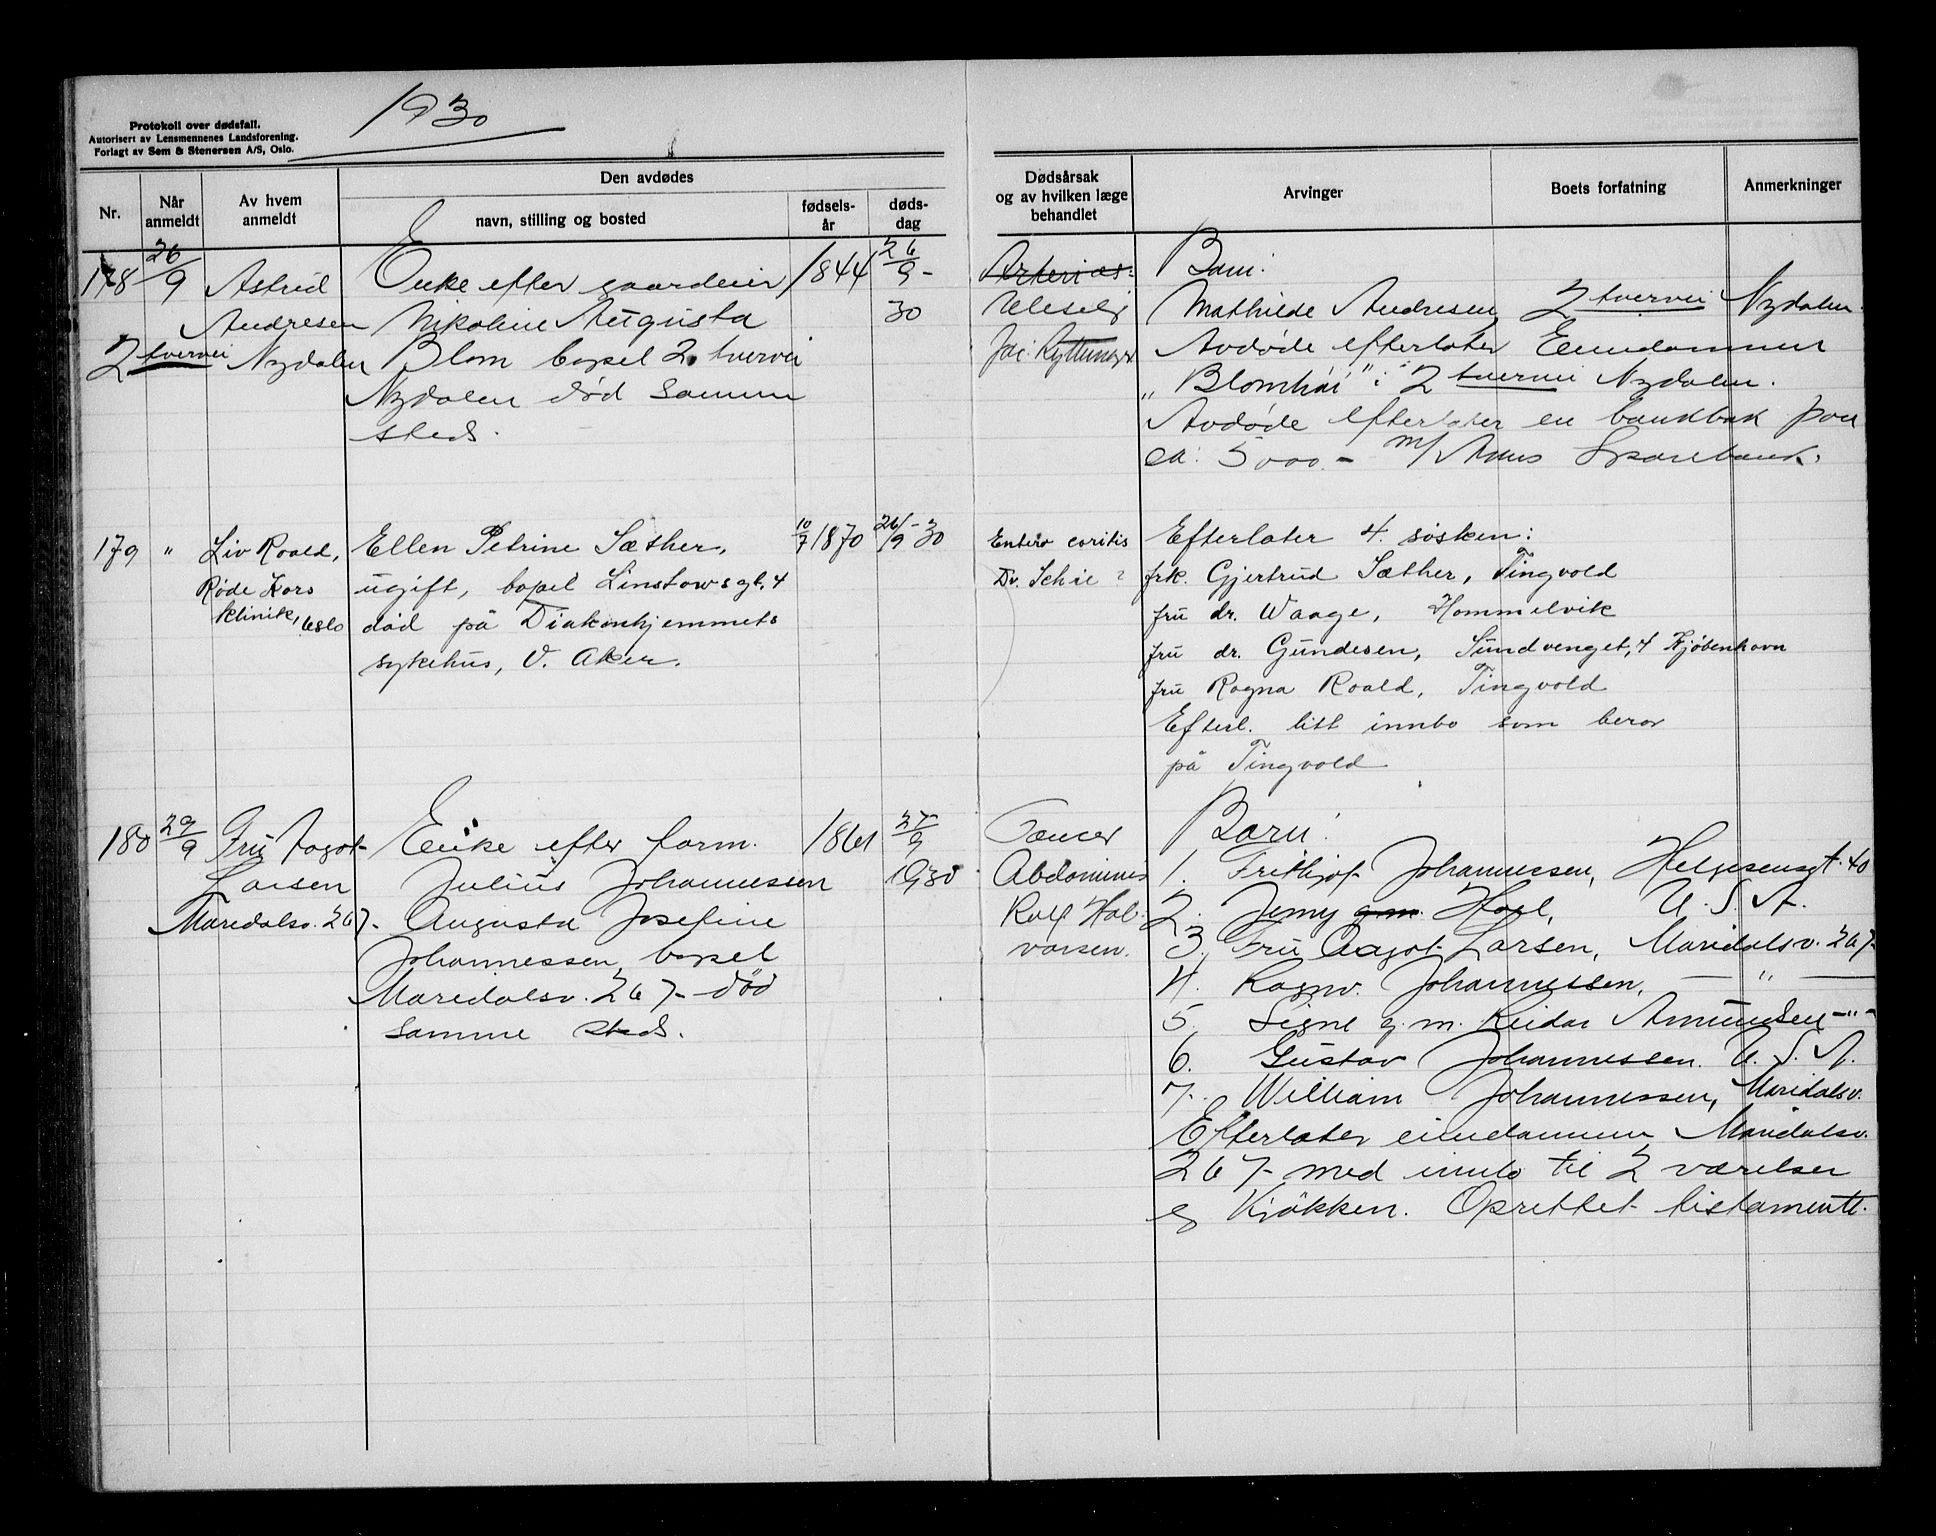 1930
Protokoll over dødsfall.
Autorisert av Lensmennenes Landsforening.
Forlagt av Sem & Stenersen A/S, Oslo.
Nr.
Når anmeldt
Av hvem anmeldt
Den avdødes
navn, stilling og bosted
fødsels-år
døds-dag
Dødsårsak og av hvilken læge behandlet
Arvinger
Boets forfatning
Anmerkninger
178 26/9 Astrid Enke efter gaardeier 1844 26/9 -
Andresen Nikoline Augusta 30
2 tvervei Nydalen Blom bopel 2. tvervei
Nydalen død samme
steds.
Barn:
Mathilde Andresen, 2 tvervei Nydalen.
Avdøde efterlater Eiendommen
„Blomhøi" i 2 tvervei Nydalen.
Avdøde efterlater en bankbok paa
ca. 5000.- m/ Akers Sparebank.
179 " Liv Roald, Ellen Petrine Sæther, 10/7 1870 26/9 - 30
Røde Kors ugift, bopel Linstowsgt. 4
klinik, Oslo død på Diakonhjemmets
sykehus, V. Aker.
Entero
Dr. Schie ?
Efterlater 4. søsken:
frk. Gjertrud Sæther, Tingvold
fru dr. Waage, Hommelvik
fru dr. Gundesen, Sundvenget, 4 Kjøbenhavn
fru Ragna Roald, Tingvold
Efterl. litt innbo som beror
på Tingvold
180 29/9 Fru Aagot Enke efter form. 1861 27/9
Larsen Julius Johannessen 1930
Maridalsv. 267 Augusta Josefine
Johannessen bopel
Maridalsv. 267 død
samme steds.
Cancer
Abdominis
Rolf Hal-
vorsen.
Barn:
1. Frithjof Johannessen, Helgesensgt. 40
2. Jenny g.m. Hoel, U.S.A.
3. Fru Aagot Larsen, Maridalsv. 267
4. Ragnv. Johannessen, — " —
5. Signe g.m. Reidar Amundsen - " -
6. Gustav Johannessen. U.S.A.
7. William Johannessen, Maridalsv.
Efterlater eiendommen Maridalsv.
267 med innbo til 2 værelser
og Kjøkken. Oprettet testamente.